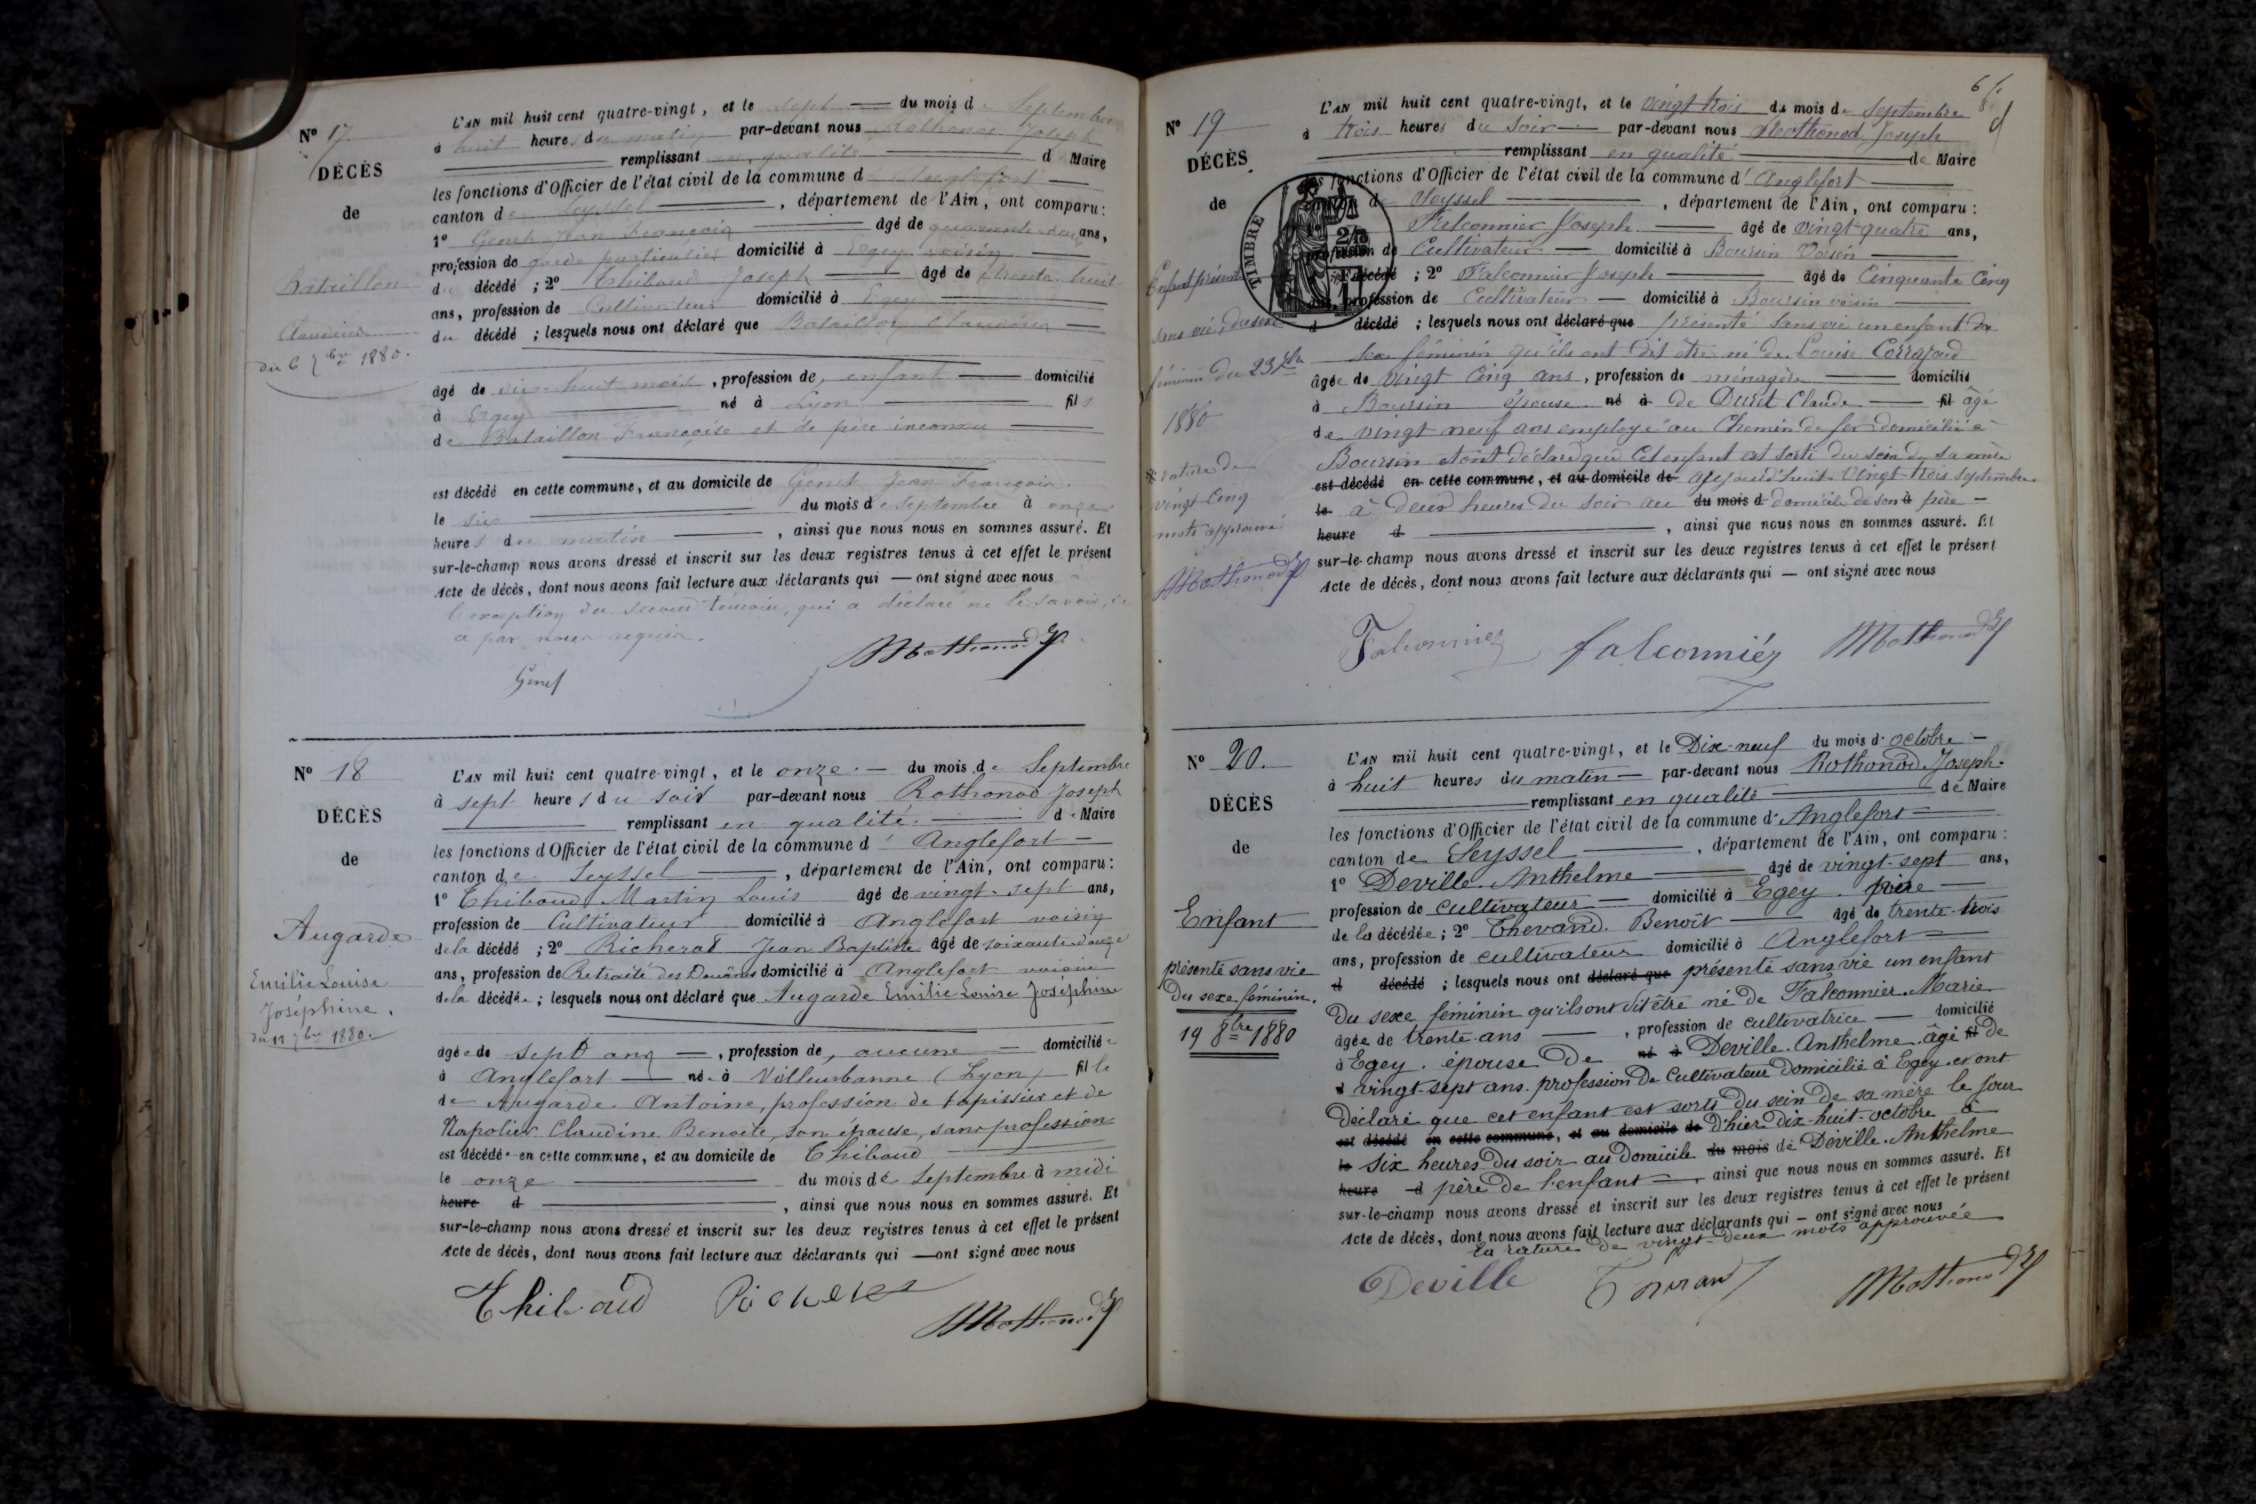 Nº 17
DÉCÈS
de
Bataillon
Claudius
du 6 7bre 1880.
L'AN mil huit cent quatre-vingt, et le sept du mois de Septembre
à huit heures du matin par-devant nous Rothonod Joseph
remplissant en qualité de Maire
les fonctions d'Officier de l'état civil de la commune d'Anglefort
canton de Seyssel, département de l'Ain, ont comparu:
1º Genet Jean François âgé de quarante deux ans,
profession de garde particulier domicilié à Egey voisin
du décédé; 2º Thibaud Joseph âgé de trente huit
ans, profession de Cultivateur domicilié à Egey
du décédé; lesquels nous ont déclaré que Bataillon
âgé de dix-huit mois, profession de, enfant domicilié
à Egey né à Lyon fils
de Bataillon Françoise et de père inconnu
est décédé en cette commune, et au domicile de Genet Jean François
le six du mois de Septembre à onze
heures du matin, ainsi que nous nous en sommes assuré. Et
sur-le-champ nous avons dressé et inscrit sur les deux registres tenus à cet effet le présent
Acte de décès, dont nous avons fait lecture aux déclarants qui — ont signé avec nous
l'exception du second témoin, qui a déclaré ne le savoir, de
a par nous requis.
Genet
Rothonod
Nº 18
DÉCÈS
de
Augarde
Emilie Louise
Joséphine.
du 11 7bre 1880.
L'AN mil huit cent quatre-vingt, et le onze. — du mois de Septembre
à sept heures du soir par-devant nous Rothonod Joseph
remplissant en qualité. de Maire
les fonctions d'Officier de l'état civil de la commune d'Anglefort
canton de Seyssel, département de l'Ain, ont comparu:
1º Thibaud Martin Louis âgé de vingt-sept ans,
profession de Cultivateur domicilié à Anglefort voisin
de la décédé; 2º Richerot Jean Baptiste âgé de soixante-douze
ans, profession de Retraité des Douânes domicilié à Anglefort voisin
de la décédée; lesquels nous ont déclaré que Augarde Emilie Louise Joséphine
âgée de sept ans —, profession de, aucune — domiciliée
à Anglefort — née à Villeurbanne (Lyon) fille
de Augarde Antoine, profession de tapissier et de
Napolier Claudine Benoite, son épouse, sans profession
est décédée en cette commune, et au domicile de Thibaud
le onze du mois de Septembre à midi
heure d, ainsi que nous nous en sommes assuré. Et
sur-le-champ nous avons dressé et inscrit sur les deux registres tenus à cet effet le présent
Acte de décès, dont nous avons fait lecture aux déclarants qui — ont signé avec nous
Thibaud Richerot
Rothonod
Nº 19
DÉCÈS
de
Enfant présenté
sans vie, du sexe
féminin du 23 7bre
1880
rature de
vingt cinq
mots approuvé
Rothonod
TIMBRE
L'AN mil huit cent quatre-vingt, et le vingt trois du mois de Septembre
à trois heures du soir — par-devant nous Rothonod Joseph
remplissant en qualité de Maire
les fonctions d'Officier de l'état civil de la commune d'Anglefort
canton de Seyssel, département de l'Ain, ont comparu:
Falconnier Joseph âgé de vingt-quatre ans,
profession de Cultivateur — domicilié à Boursin Voisin
décédé; 2º Falconnier Joseph âgé de Cinquante Cinq
ans, profession de Cultivateur — domicilié à Boursin voisin
d décédé; lesquels nous ont déclaré que présenté sans vie un enfant du
sexe féminin qu'ils ont dit être né de Louise Corrajoud
âgée de vingt Cinq ans, profession de ménagère domicilié
à Boursin épouse né à de Duret Claude — fil âgé
de vingt neuf ans employé au Chemin de fer domicilié à
Boursin et ont déclaré que cet enfant est sorti du sein de sa mère
est décédé en cette commune, et au domicile de aujourd'huit vingt trois septembre
le à deux heures du soir au du mois d domicile de son à père —
heure d, ainsi que nous nous en sommes assuré. Et
sur-le-champ nous avons dressé et inscrit sur les deux registres tenus à cet effet le présent
Acte de décès, dont nous avons fait lecture aux déclarants qui — ont signé avec nous
Falconnier falconniér Rothonod
Nº 20.
DÉCÈS
de
Enfant
présenté sans vie
Du sexe féminin.
19 8bre 1880
L'AN mil huit cent quatre-vingt, et le Dix-neuf du mois d'octobre —
à huit heures du matin — par-devant nous Rothonod Joseph.
remplissant en qualité de Maire
les fonctions d'Officier de l'état civil de la commune d'Anglefort
canton de Seyssel, département de l'Ain, ont comparu:
1º Deville Anthelme âgé de vingt-sept ans,
profession de cultivateur — domicilié à Egey. père
de la décédée; 2º Thevand. Benoît âgé de trente-trois
ans, profession de cultivateur domicilié à Anglefort
d décédé; lesquels nous ont déclaré que présenté sans vie un enfant
Du sexe féminin qu'ils ont dit être né de Falconnier Marie
âgée de trente ans —, profession de cultivatrice — domicilié
à Egey. épouse De né à Deville. Anthelme. âgé fil de
d vingt-sept ans. profession De Cultivateur Domicilié à Egey. et ont
Déclaré que cet enfant est sorti Du sein De sa mère le jour
est décédé en cette commune, et au domicile de D'hier Dix-huit-octobre à
le six heures Du soir au Domicile du mois de Deville. Anthelme
heure d père De l'enfant, ainsi que nous nous en sommes assuré. Et
sur-le-champ nous avons dressé et inscrit sur les deux registres tenus à cet effet le présent
Acte de décès, dont nous avons fait lecture aux déclarants qui — ont signé avec nous
la rature de vingt-deux mots approuvée
Deville Rothonod